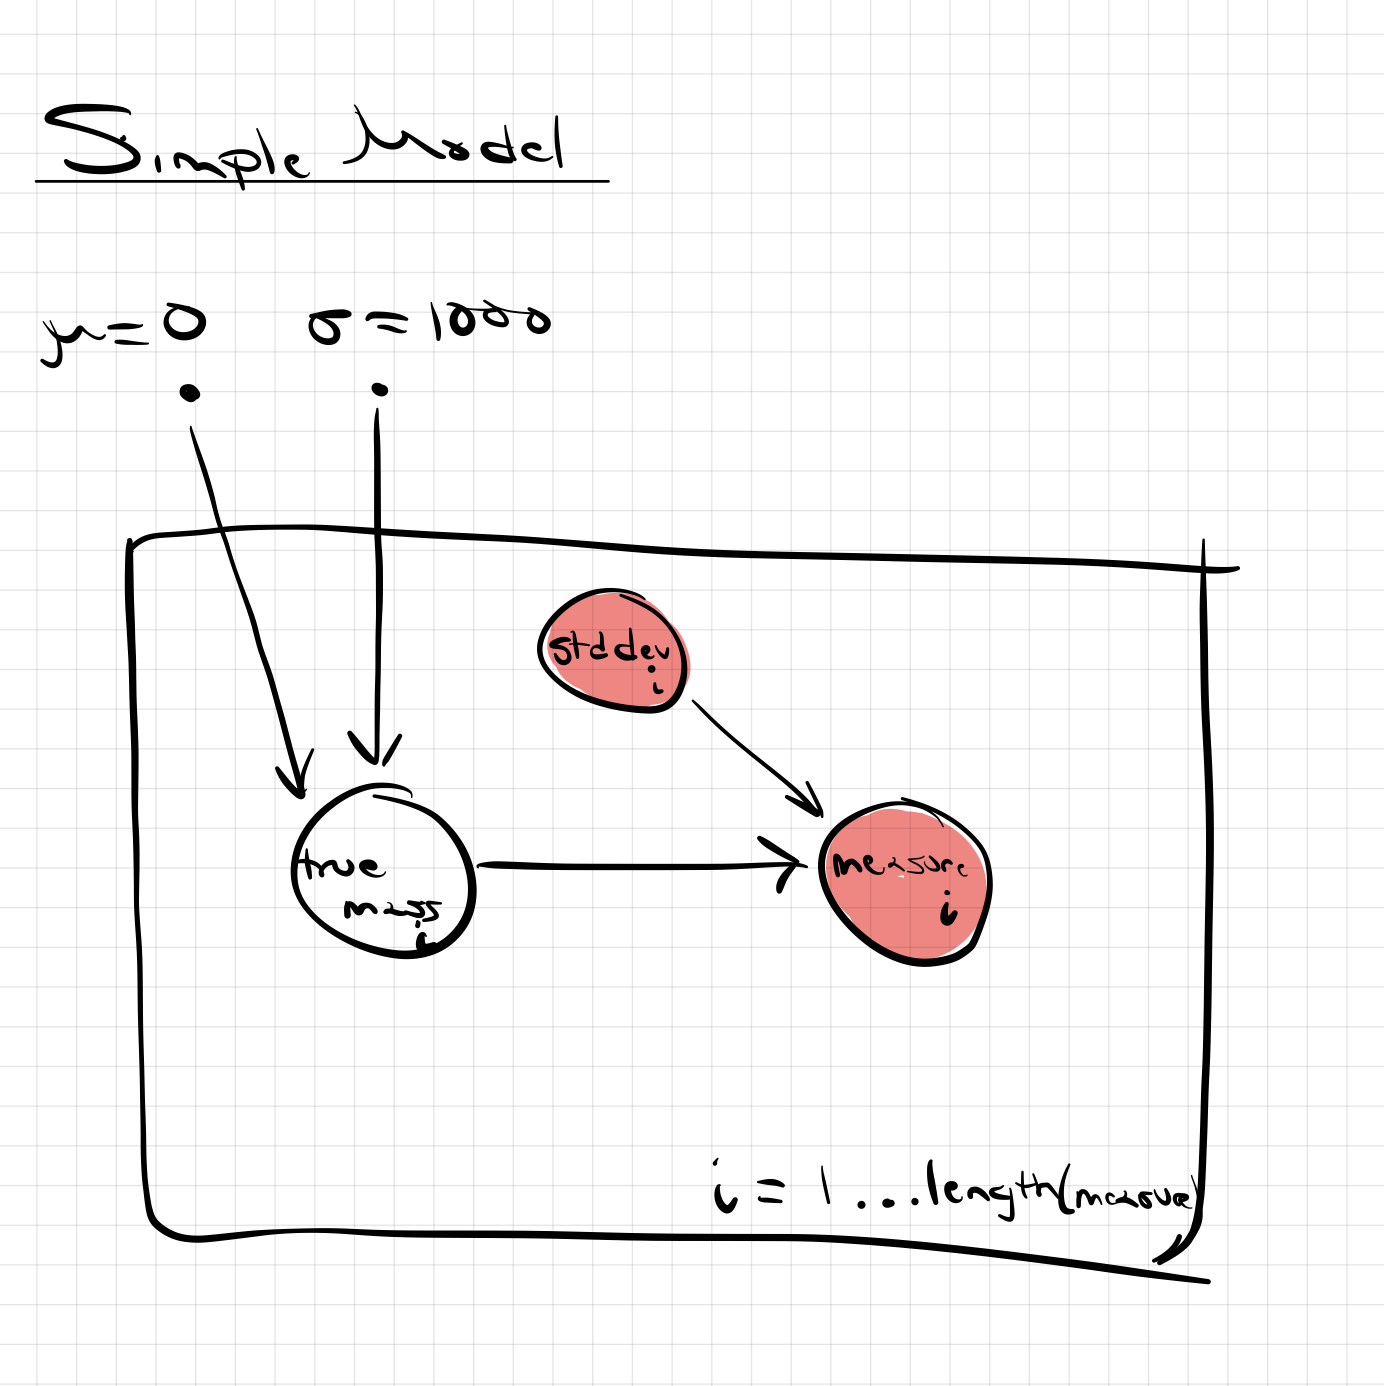 Simple Model
μ=0 σ=1000
stddev i
true
mass i
measure i
i = 1...length(measure)